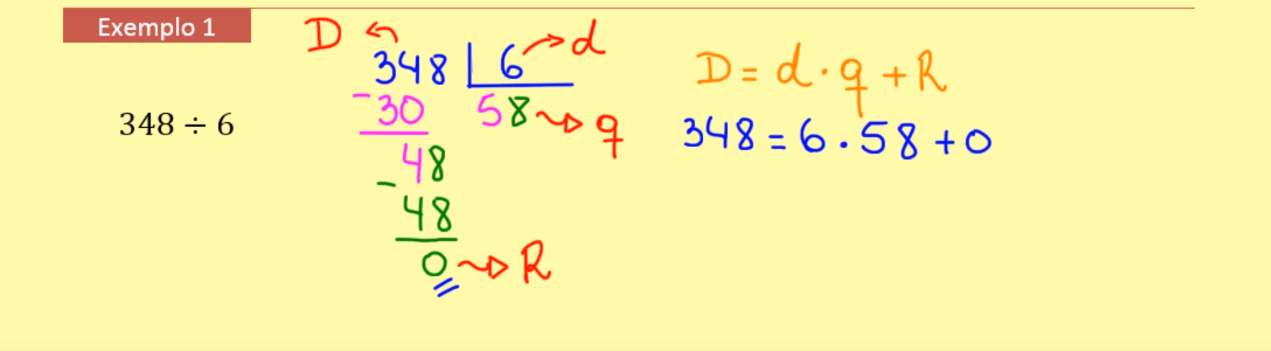 Exemplo 1
348 ÷ 6
D
348 6 d
-30 58 q
48
-48
0 R
D = d · q + R
348 = 6 . 58 + 0